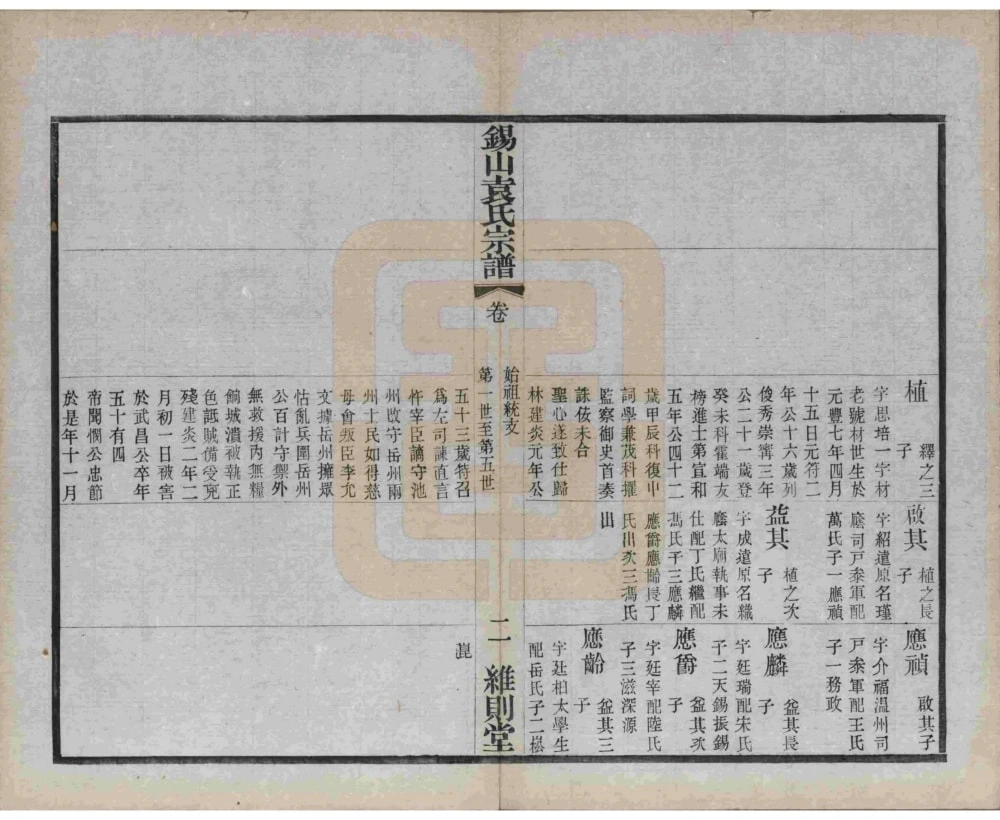 植　繹之三子
字思培一字材
老號材世生於
元豐七年四月
十五日元符二
年公十六歲列
俊秀崇寧三年
公二十一歲登
癸未科霍端友
榜進士第宣和
五年公四十二
歲甲辰科復中
詞學兼茂科擢
監察御史首奏
誅伎未合
聖心遂致仕歸
林建炎元年公
五十三歲特召
為左司諫直言
忤宰臣謫守池
州改守岳州兩
州士民如得慈
母會叛臣李允
文據岳州擁眾
怙亂兵圍岳州
公百計守禦外
無救援內無糧
餉城潰被執正
色詆賊備受兇
殘建炎二年二
月初一日被害
於武昌公卒年
五十有四
帝聞憫公忠節
於是年十一月
啟其　植之長子
字紹遺原名瑾
廕司戸叅軍配
萬氏子一應禎
益其　植之次子
字成遺原名織
廕太廟執事未
仕配丁氏繼配
馮氏子三應麟
應爵應齡長丁
氏出次三馮氏
出
應禎　啟其子
字介福溫州司
戸叅軍配王氏
子一務政
應麟　益其長子
字廷瑞配宋氏
子二天錫振錫
應爵　益其次子
字廷宰配陸氏
子三滋深源
應齡　益其三子
字廷柏太學生
配岳氏子二崧
崑
錫山袁氏宗譜
卷
始祖統支
第一世至第五世
二
維則堂